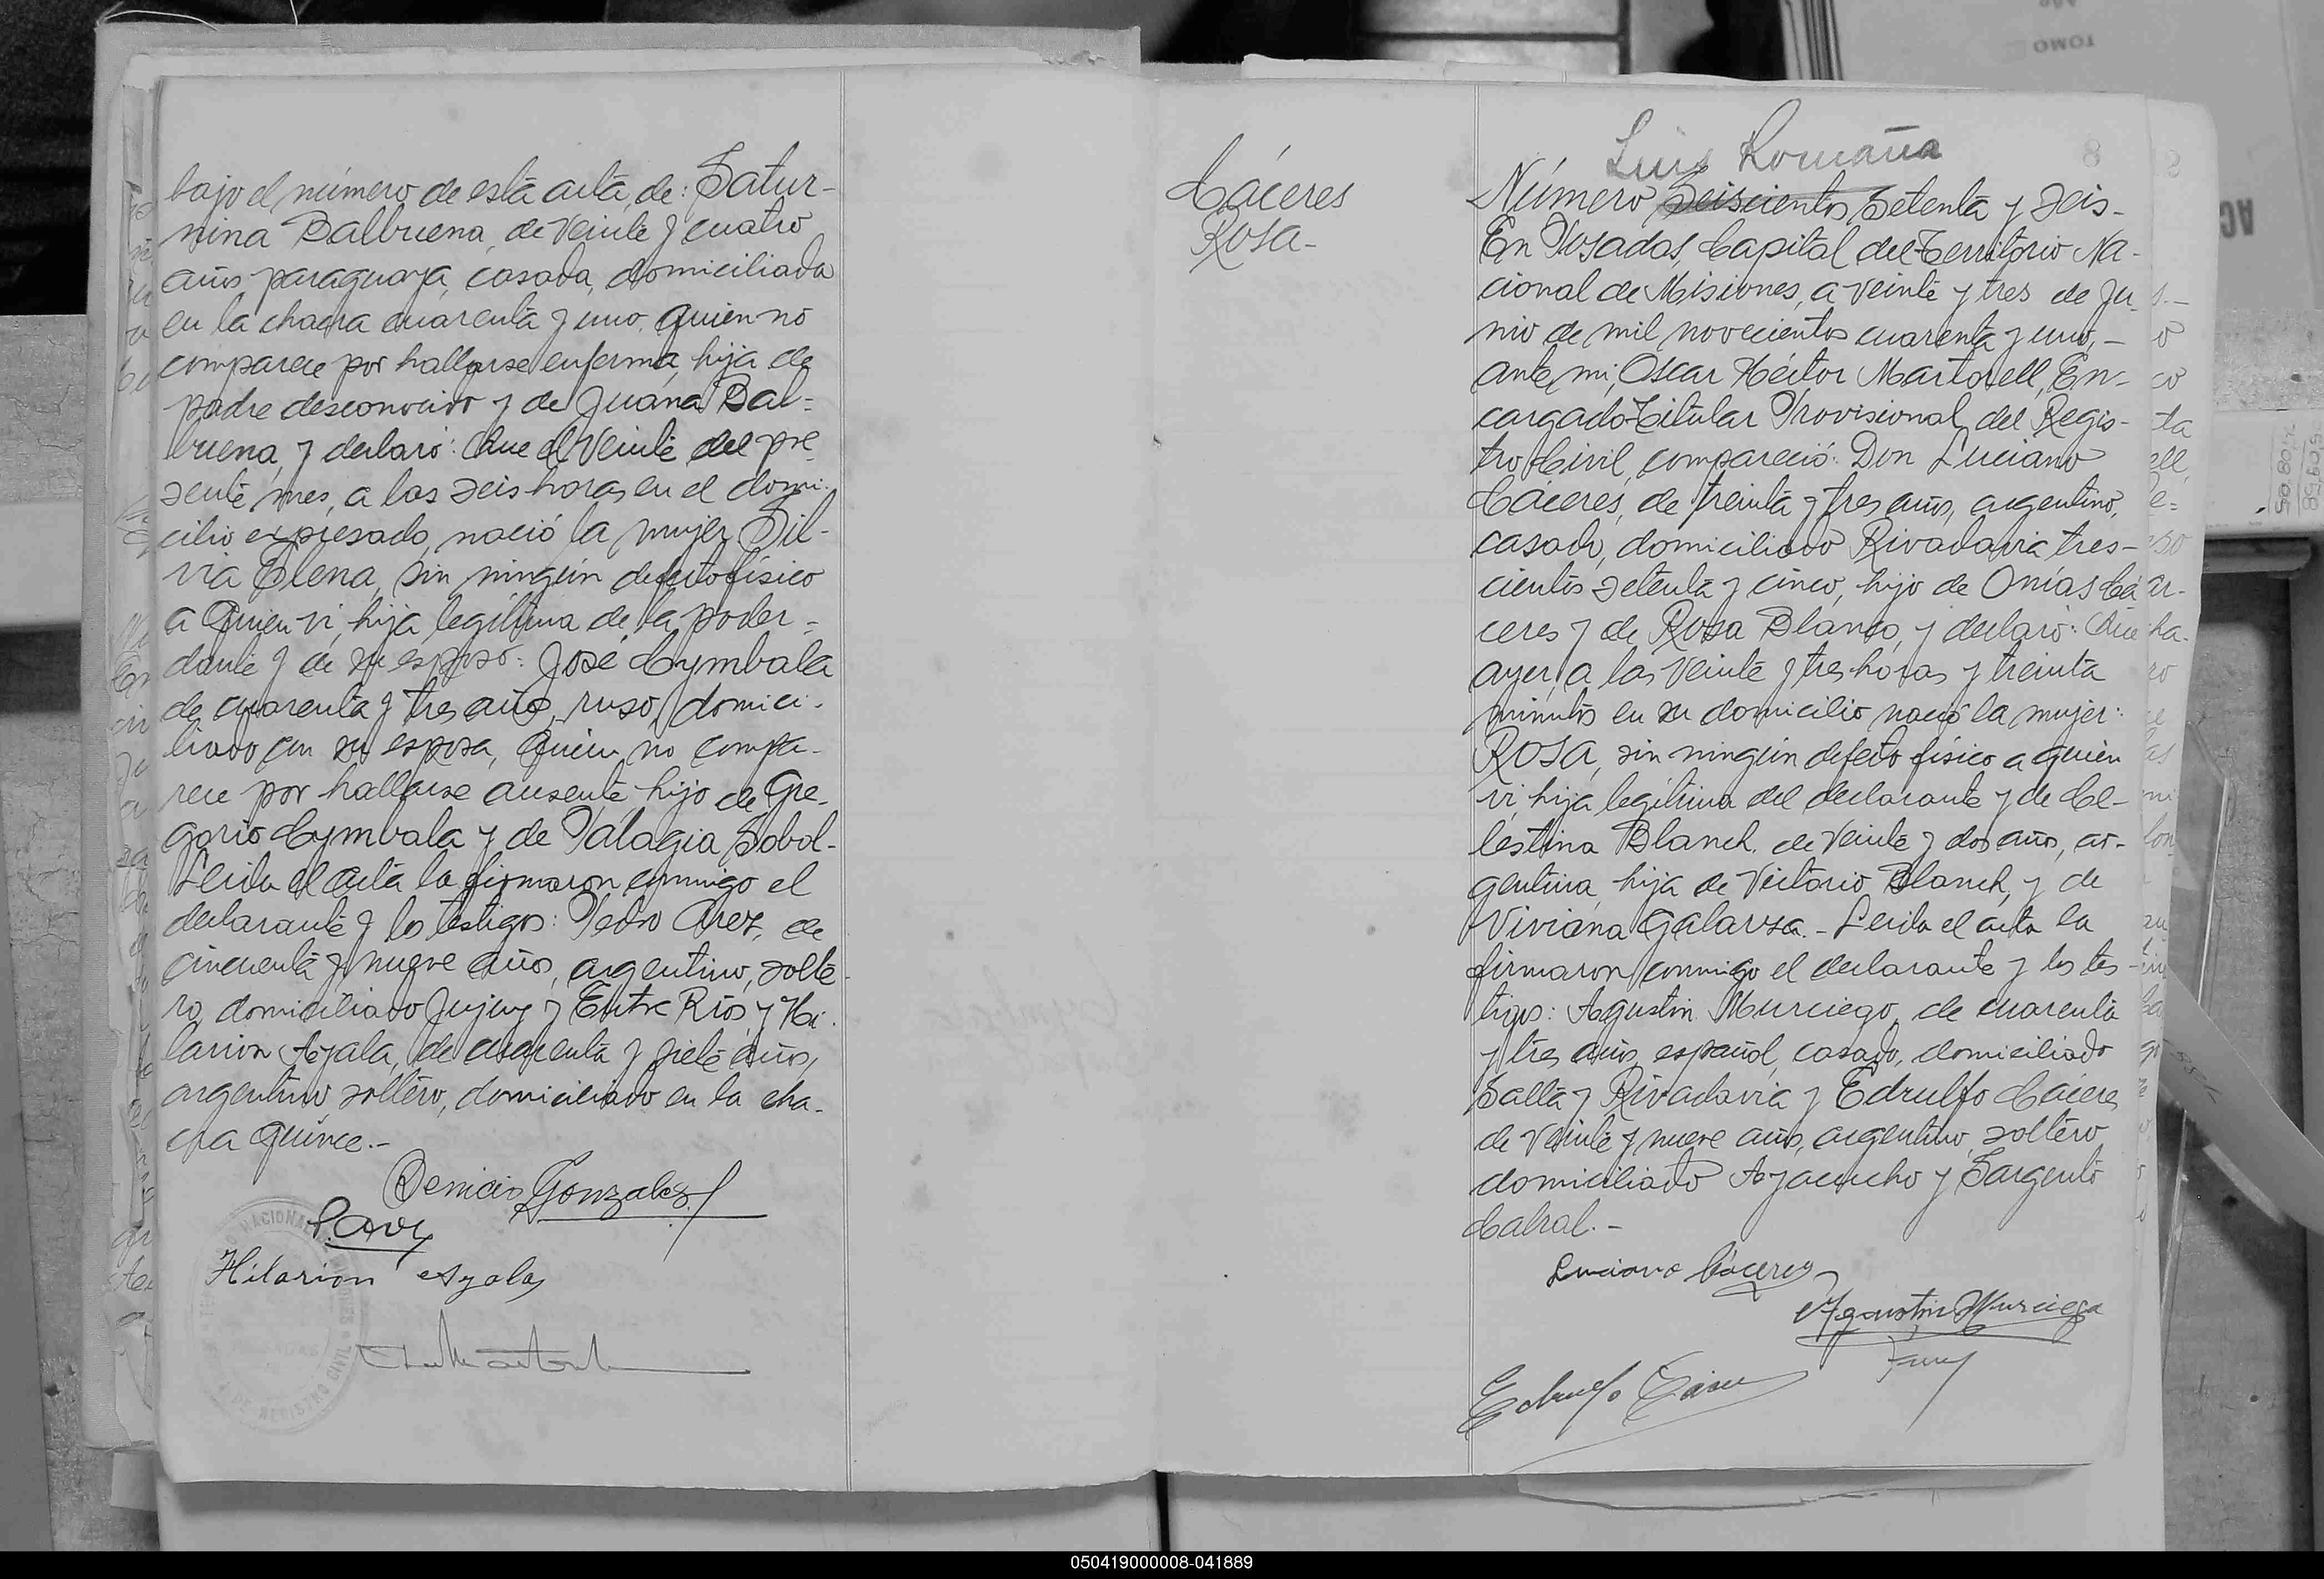 bajo el número de esta acta, de: Satur-
nina Balbuena, de veinte y cuatro
años, paraguaya, casada, domiciliada
en la chacra cuarenta y uno, quien no
comparece por hallarse enferma, hija de
padre desconocido y de Juana Bal-
buena, y declaró: Que el veinte del pre
sente mes, a las seis horas en el domi-
cilio expresado, nació la mujer Sil-
via Elena, sin ningún defecto físico
a quien vi, hija legítima de la poder-
dante y de su esposo: José Cymbala
de cuarenta y tres años, ruso, domici-
liado con su esposa, quien no compa-
rece por hallarse ausente, hijo de Gre-
gorio Cymbala y de Palagia Sobol-
Leida el acta la firmaron conmigo el
declarante y los testigos: Pedro Arez, de
cincuenta y nueve años, argentino, solte
ro, domiciliado Jujuy y Entre Ríos, y Hi-
larion Ayala, de cuarenta y siete años,
argentino, soltero, domiciliado en la cha-
cra quince.-
Gonzalez
Hilarion Ayala
Cáceres
Rosa-
Luis Romaña
8
Número Seiscientos Setenta y Seis-
En Posadas, Capital del Territorio Na-
cional de Misiones, a veinte y tres de Ju
nio de mil novecientos cuarenta y uno,-
ante mi, Oscar Héctor Martorell, En-
cargado Titular Provisional del Regis-
tro Civil, compareció: Don Luciano
Cáceres, de treinta y tres años, argentino,
casado, domiciliado Rivadavia tres-
cientos setenta y cinco, hijo de Onías Cá
ceres y de Rosa Blanco, y declaró: Que
ayer, a las veinte y tres horas y treinta
minutos en su domicilio nació la mujer:
ROSA, sin ningún defecto físico a quien
vi, hija legítima del declarante y de Ce-
lestina Blanch. de veinte y dos años, ar-
gentina, hija de Victorio Blanch, y de
Viviana Galarza.- Leida el acta la
firmaron conmigo el declarante y los tes-
tigos: Agustin Murciego, de cuarenta
y tres años, español, casado, domiciliado
Salta y Rivadavia y Edrulfo Cáceres
de veinte y nueve años, argentino, soltero,
domiciliado Ayacucho y Sargento
Cabral.-
Luciano Cáceres
Agustin Murciego
Edrulfo
TOMO
050419000008-041889